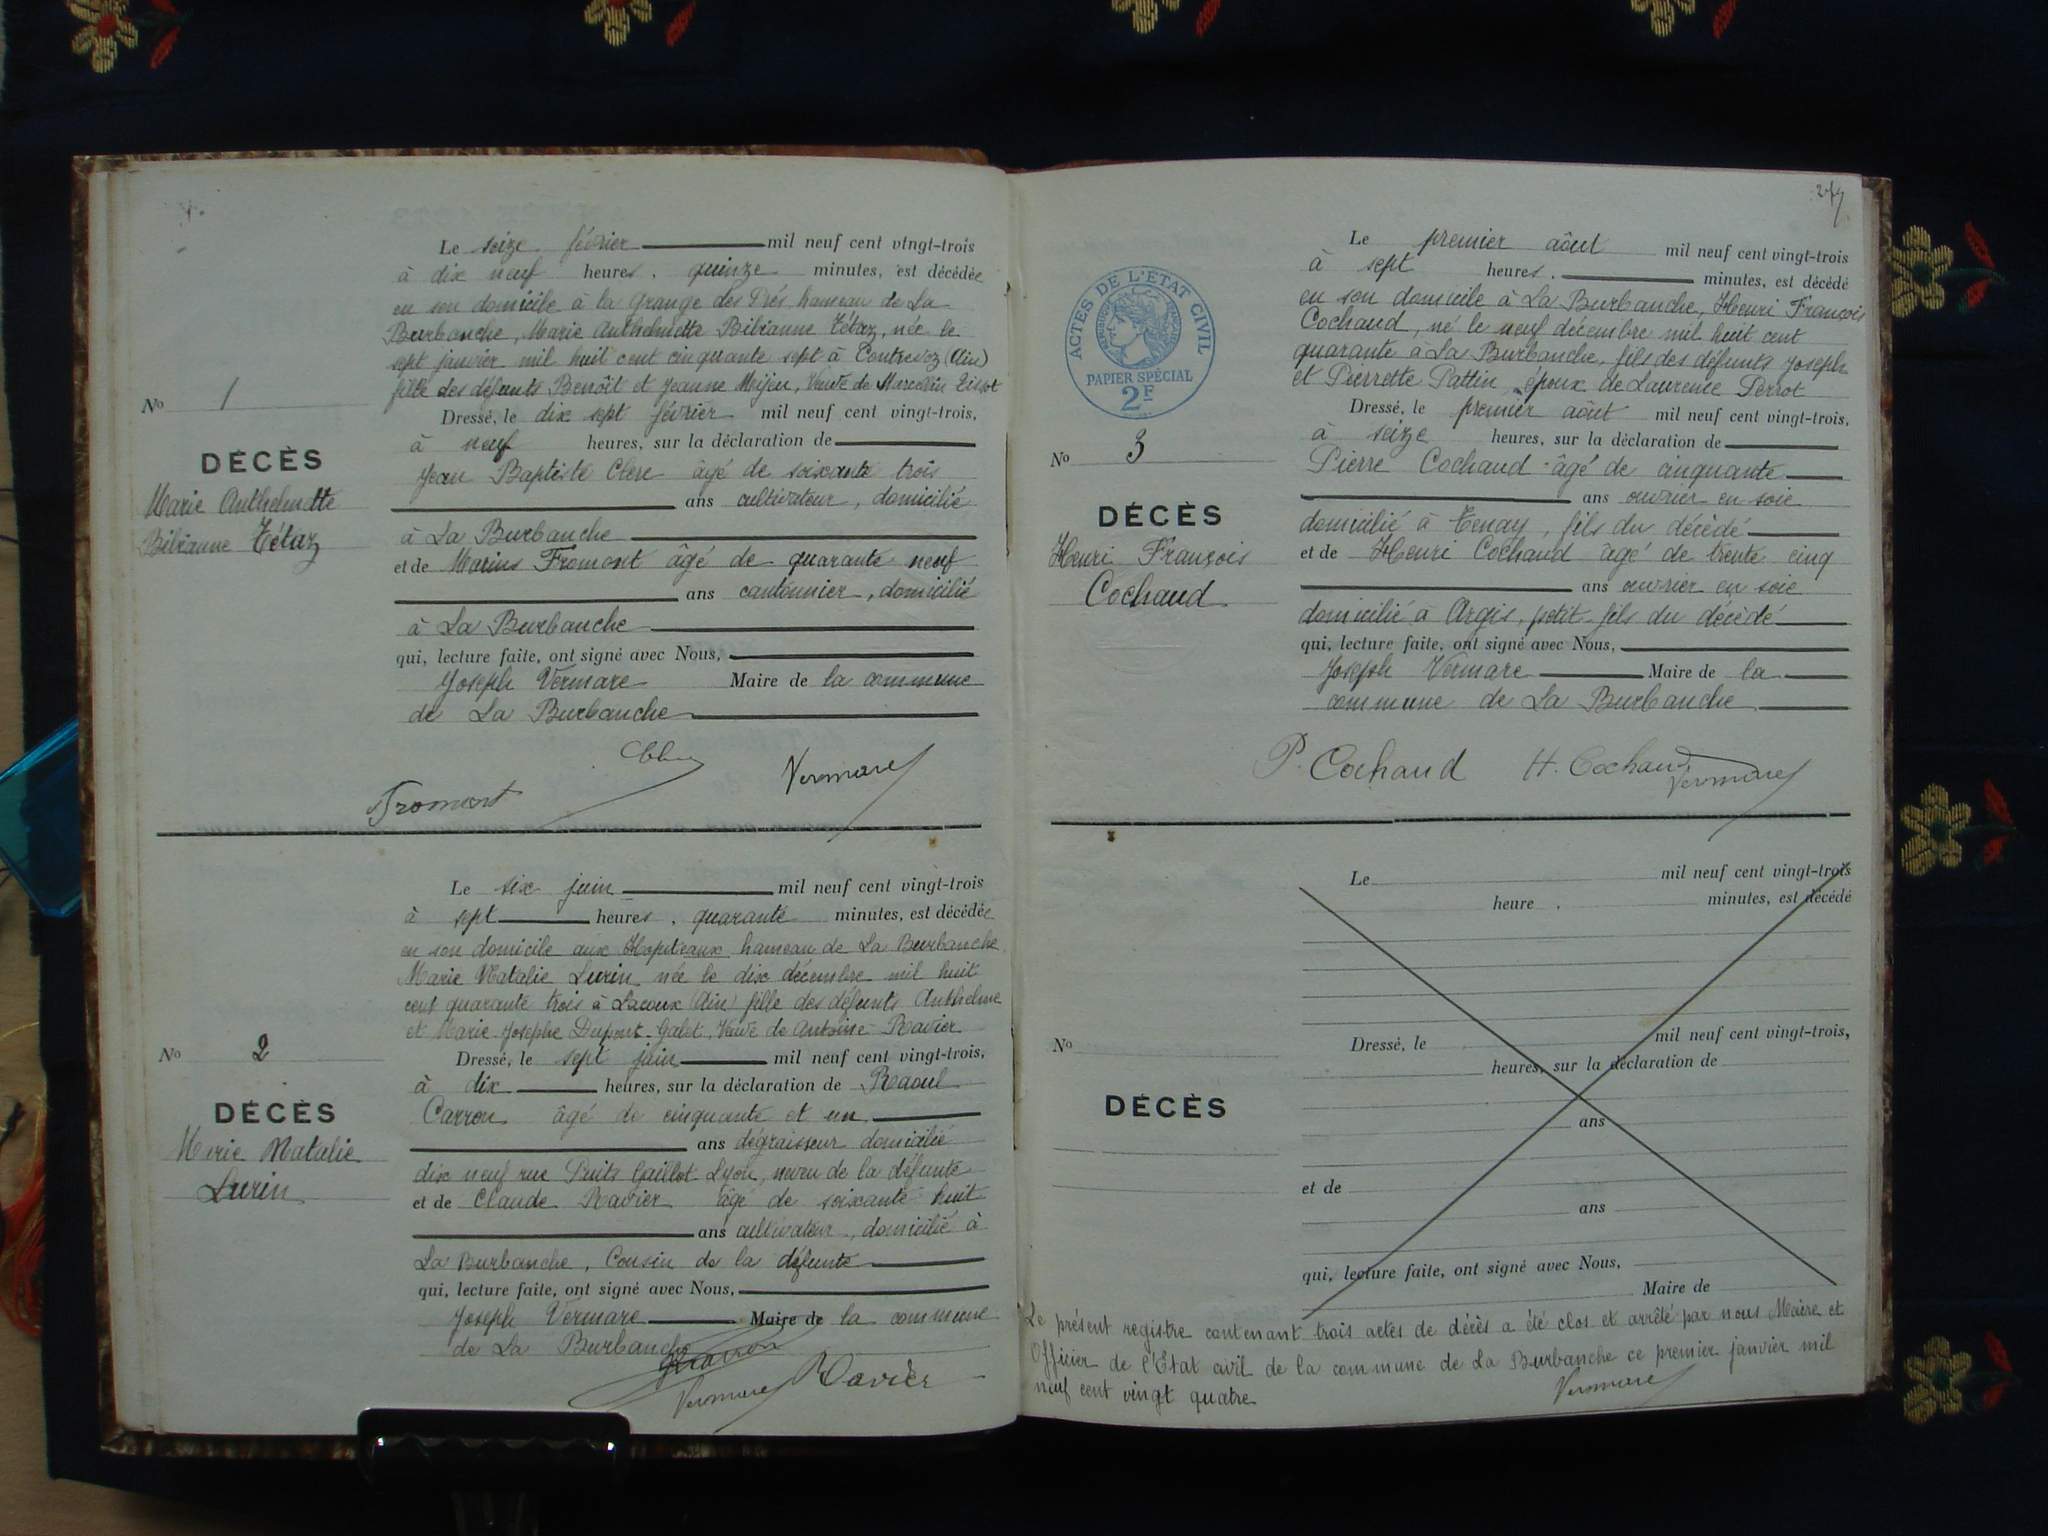 Le seize février mil neuf cent vingt-trois
à dix neuf heures, quinze minutes, est décédée
en son domicile à la Grange des Prés hameau de La
Burbanche, Marie Anthelmette Bibianne Tétaz, née le
sept janvier mil huit cent cinquante sept à Contrevoz (Ain)
fille des défunts Benoît et Jeanne Mijeu, Veuve de Marcellin Tissot
No 1
DÉCÈS
Marie Anthelmette
Bibianne Tétaz
Dressé, le dix sept février mil neuf cent vingt-trois,
à neuf heures, sur la déclaration de
Jean Baptiste Clerc âgé de soixante trois
ans cultivateur, domicilié
à La Burbanche
et de Marius Fromont âgé de quarante neuf
ans cantonnier, domicilié
à La Burbanche
qui, lecture faite, ont signé avec Nous,
Joseph Vermare Maire de la commune
de La Burbanche
Fromont Vermare
Le six juin mil neuf cent vingt-trois
à sept heures, quarante minutes, est décédée
en son domicile aux Hopiteaux hameau de La Burbanche
Marie Natalie Lurin née le dix décembre mil huit
cent quarante trois à Lacoux (Ain) fille des défunts Anthelme
et Marie Josephe Dupont-Galet, Veuve de Antoine Ravier
No 2
DÉCÈS
Marie Natalie
Lurin
Dressé, le sept juin mil neuf cent vingt-trois,
à dix heures, sur la déclaration de Raoul
Carron âgé de cinquante et un
ans dégraisseur domicilié
dix neuf rue Puits Gaillot Lyon, neveu de la défunte
et de Claude Ravier âgé de soixante huit
ans cultivateur, domicilié à
La Burbanche, Cousin de la défunte
qui, lecture faite, ont signé avec Nous,
Joseph Vermare Maire de la commune
de La Burbanche
Vermare Ravier
279
ACTES DE L'ETAT CIVIL
PAPIER SPÉCIAL
2F
Le premier août mil neuf cent vingt-trois
à sept heures, minutes, est décédé
en son domicile à La Burbanche, Henri François
Cochaud, né le neuf décembre mil huit cent
quarante à La Burbanche, fils des défunts Joseph
et Pierrette Pattin, époux de Laurence Perrot
No 3
DÉCÈS
Henri François
Cochaud
Dressé, le premier août mil neuf cent vingt-trois,
à seize heures, sur la déclaration de
Pierre Cochaud âgé de cinquante
ans ouvrier en soie
domicilié à Tenay, fils du décédé
et de Henri Cochaud âgé de trente cinq
ans ouvrier en soie
domicilié à Argis, petit-fils du décédé
qui, lecture faite, ont signé avec Nous,
Joseph Vermare Maire de la
commune de La Burbanche
P. Cochaud H. Cochaud Vermare
Le mil neuf cent vingt-trois
heure , minutes, est décédé
No
DÉCÈS
Dressé, le mil neuf cent vingt-trois,
heures, sur la déclaration de
ans
et de
ans
qui, lecture faite, ont signé avec Nous,
Maire de
Le présent registre contenant trois actes de décès a été clos et arrêté par nous Maire et
Officier de l'État civil de la commune de La Burbanche ce premier janvier mil
neuf cent vingt quatre
Vermare